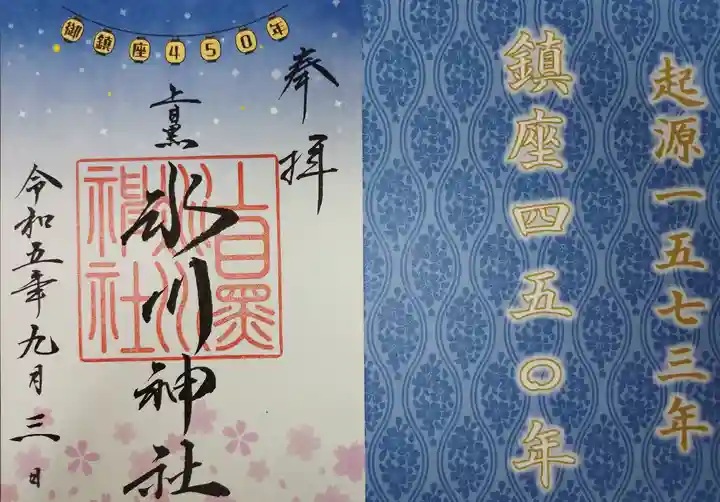 御鎮座450年
奉拝
上目黒
氷川神社
上目黒氷川神社
令和五年九月三日
起源一五七三年
鎮座四五〇年